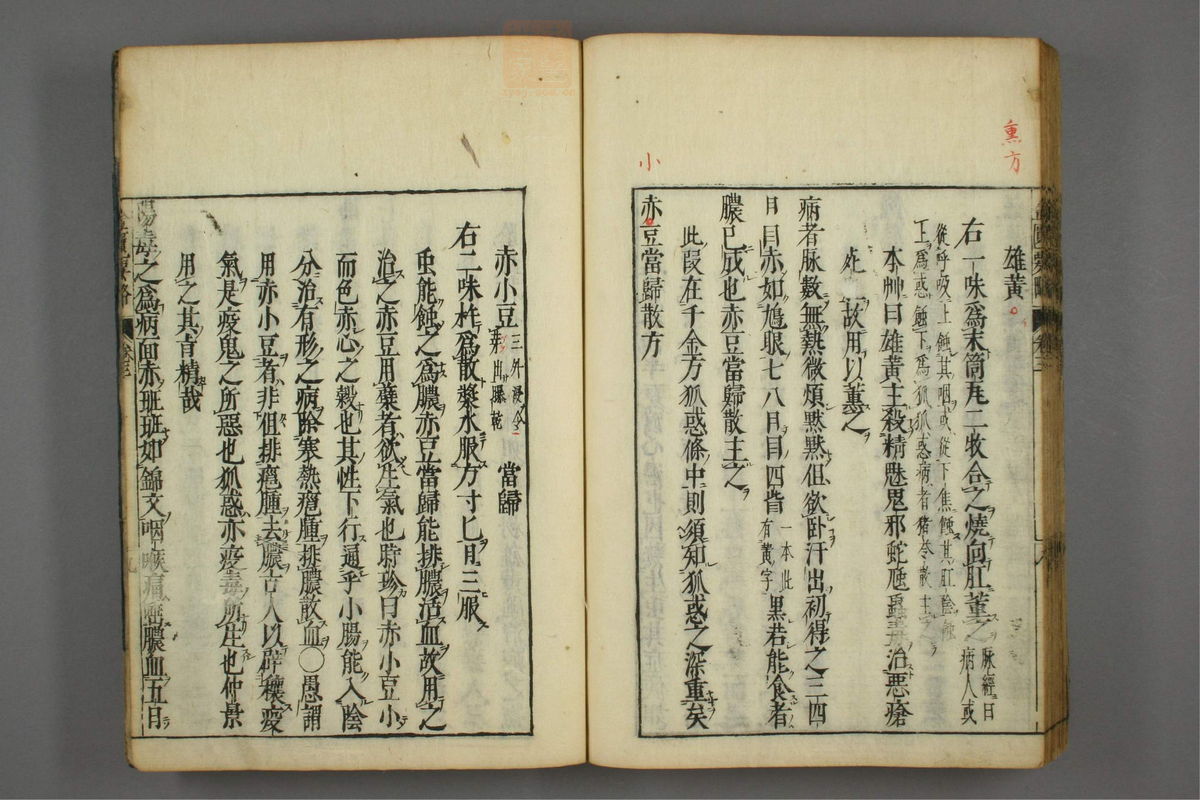 熏方
雄黄
右一味爲末筒瓦二牧合之燒向肛薫之脉經曰病人或
從呼吸上蝕其咽或從下焦蝕其肛陰蝕
上爲惑蝕下爲狐狐惑病者猪苓散主之
本艸曰雄黄主殺精魅鬼邪蛇虺蠱毒治惡瘡
死故用以薫之
病者脉數無熱微煩黙黙但欲卧汗出初得之三四
日目赤如鳩眼七八日目四眥一本此有黄字黒若能食者
膿已成也赤豆當歸散主之
此段在千金方狐惑條中則須知狐惑之深重矣
小
赤豆當歸散方
赤小豆三升浸令芽出曝乾 當歸
右二味杵爲散漿水服方寸匕日三服
虫能蝕之爲膿赤豆當歸能排膿活血故用之
治之赤豆用蘖者欲生氣也時珍曰赤小豆小
而色赤心之穀也其性下行通乎小腸能入陰
分治有形之病除寒熱癰腫排膿散血○愚謂
用赤小豆者非但排癰腫去膿古人以辟穰疫
氣是疫鬼之所惡也狐惑亦疫毒所生也仲景
用之其旨精哉
陽毒之爲病面赤班班如錦文咽喉痛唾膿血五日